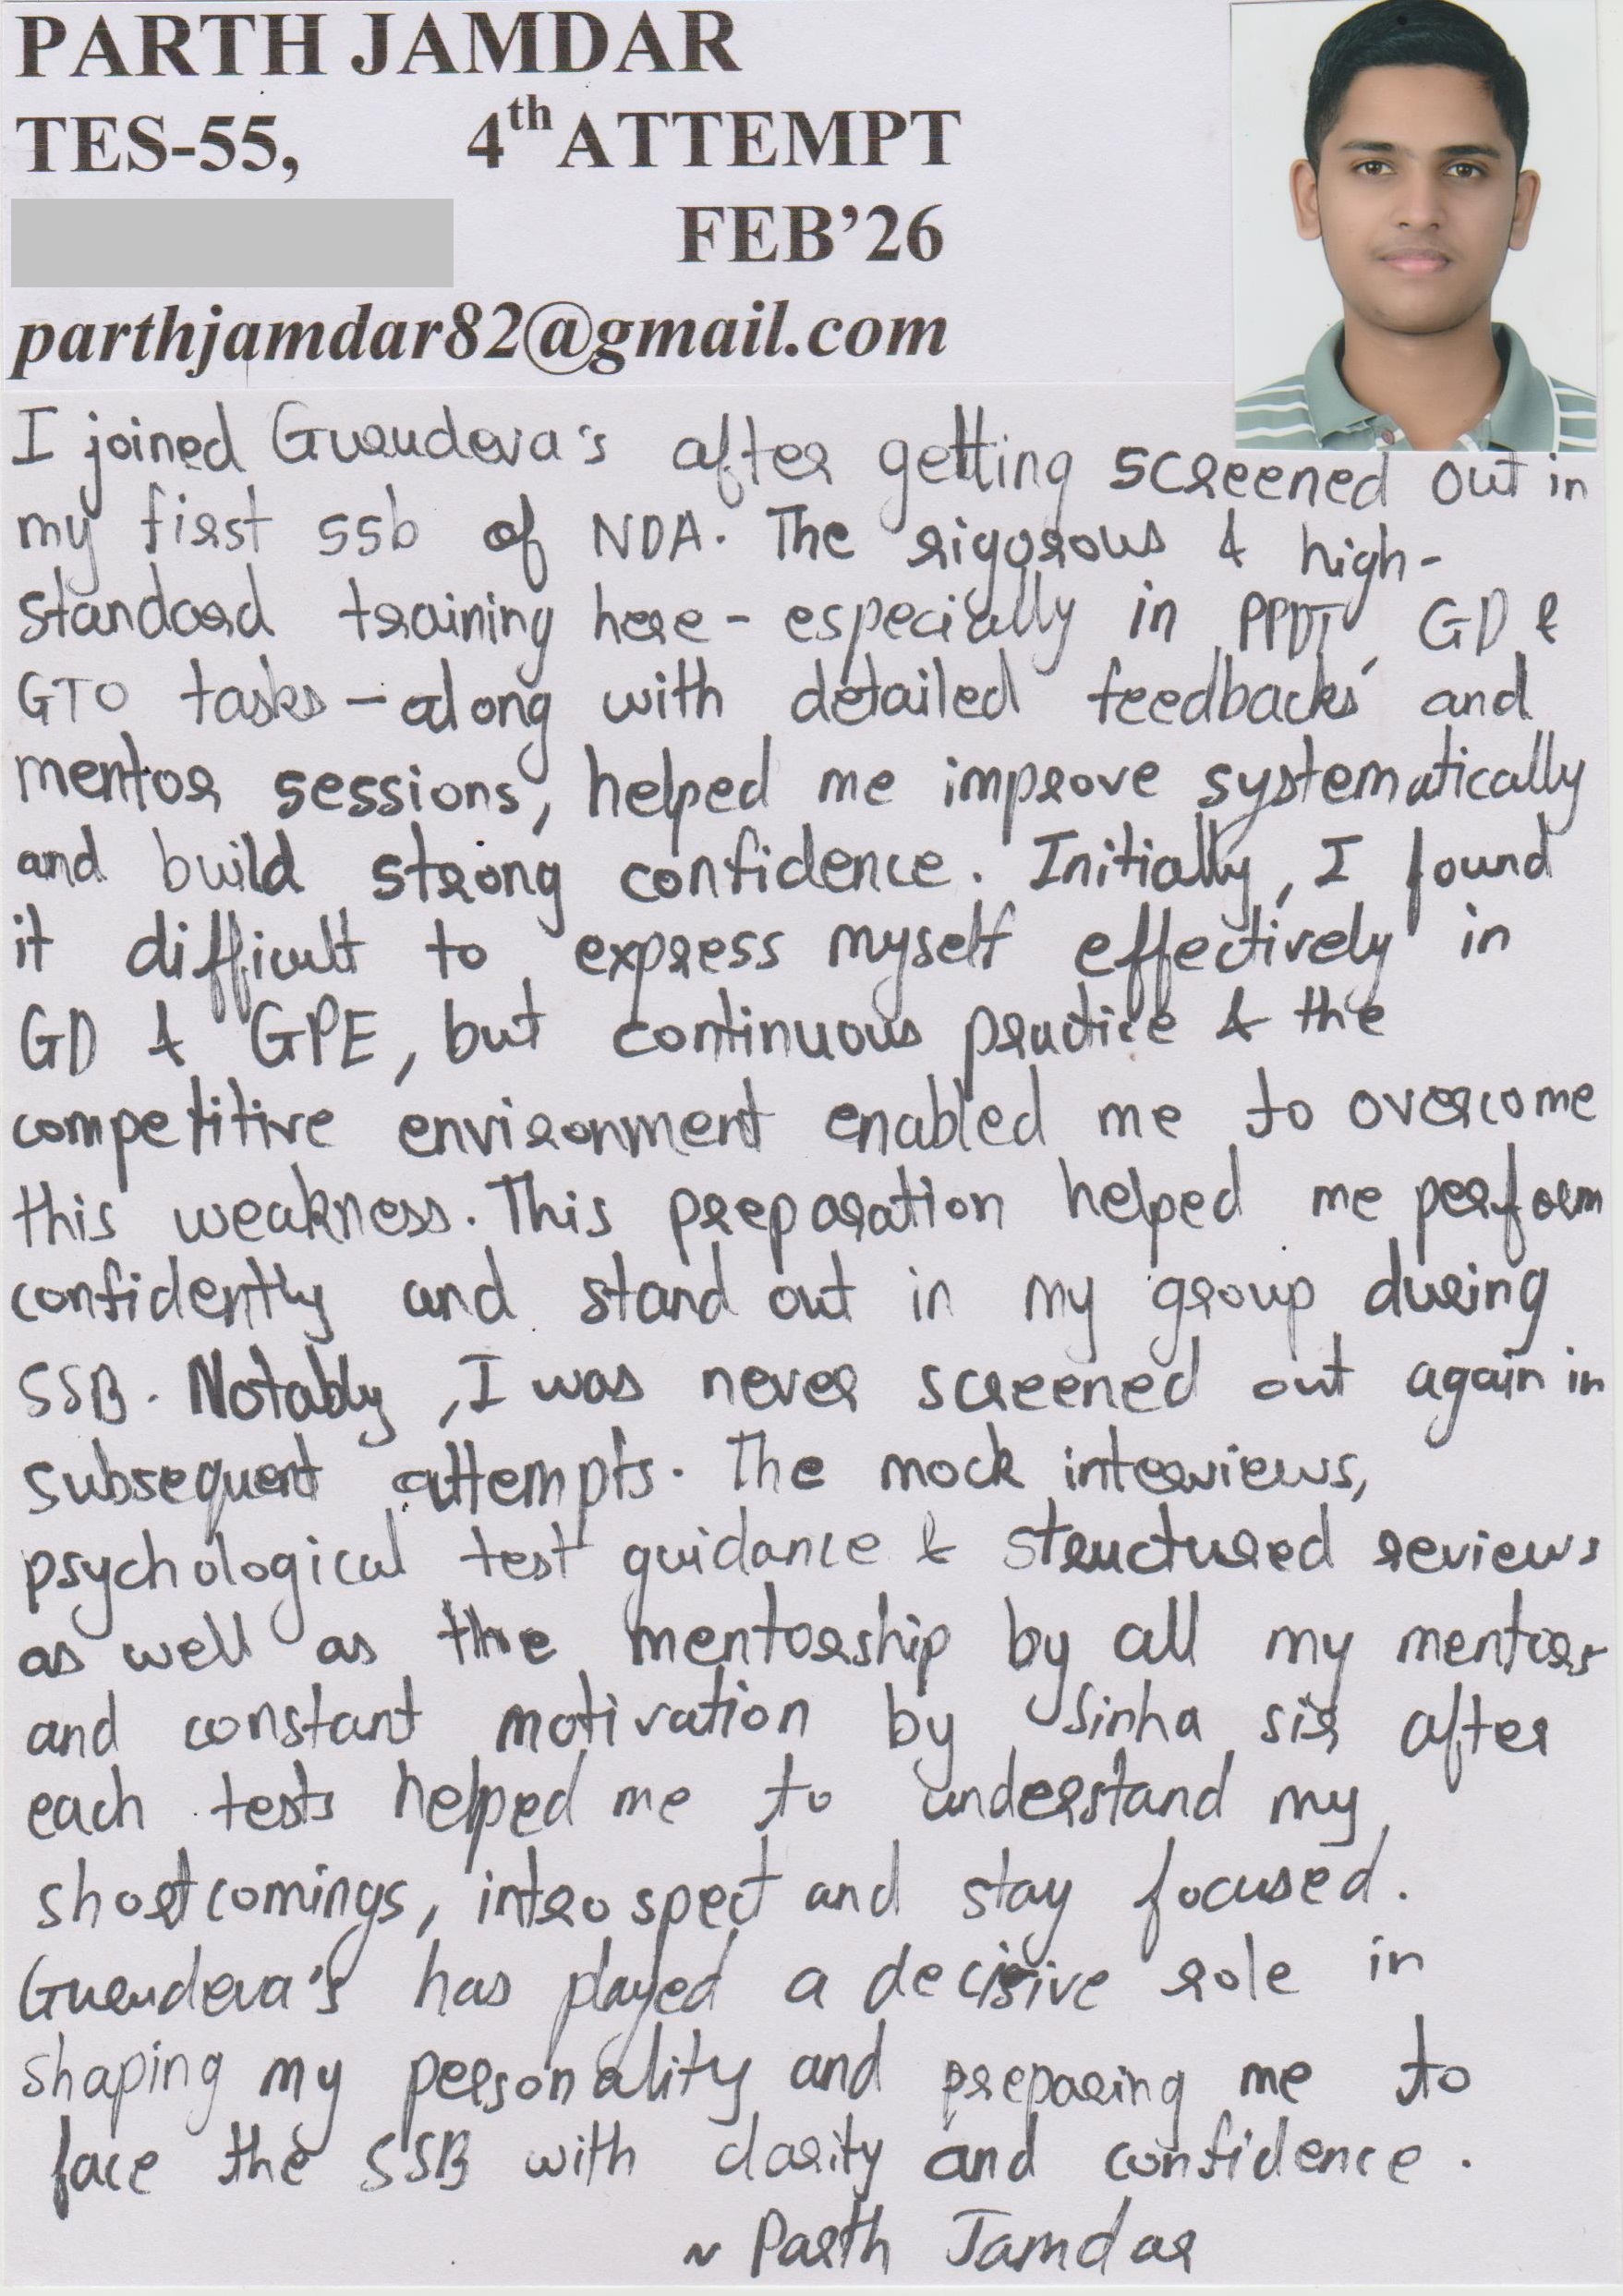 PARTH JAMDAR
TES-55, 4th ATTEMPT
FEB'26
parthjamdar82@gmail.com
I joined Gurudeva's after getting screened out in
my first ssb of NDA. The rigorous & high-
standard training here - especially in PPDT, GD &
GTO tasks - along with detailed feedbacks and
mentor sessions, helped me improve systematically
and build strong confidence. Initially, I found
it difficult to express myself effectively in
GD & GPE, but continuous practice & the
competitive environment enabled me to overcome
this weakness. This preparation helped me perform
confidently and stand out in my group during
SSB. Notably, I was never screened out again in
subsequent attempts. The mock interviews,
psychological test guidance & structured reviews
as well as the mentorship by all my mentors
and constant motivation by Sinha sir after
each tests helped me to understand my
shortcomings, introspect and stay focused.
Gurudeva's has played a decisive role in
shaping my personality and preparing me to
face the SSB with clarity and confidence.
~ Parth Jamdar